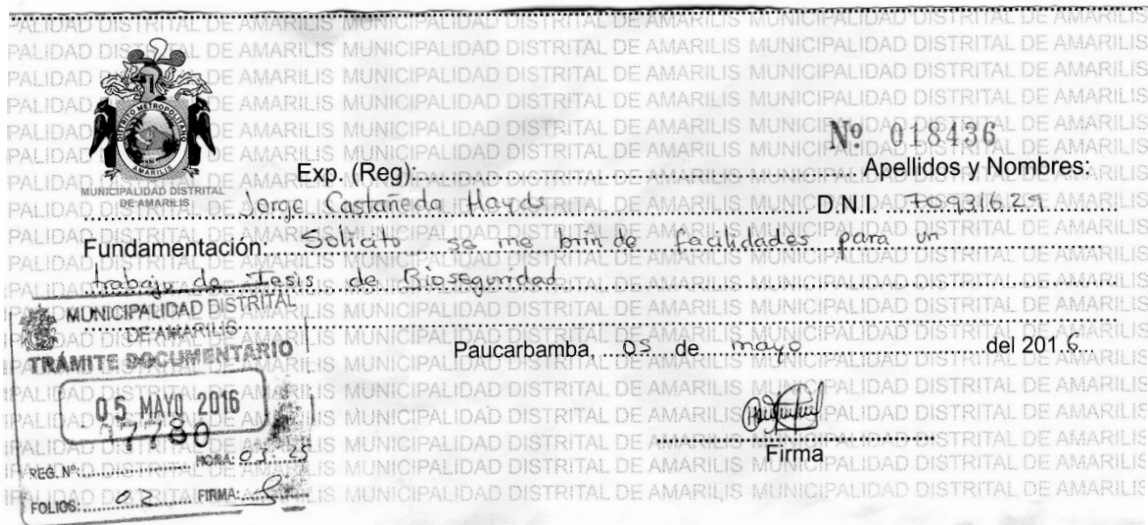 DISTRITO METROPOLITANO
AMARILIS
MUNICIPALIDAD DISTRITAL
DE AMARILIS
Nº 018436
Exp. (Reg): Apellidos y Nombres:
Jorge Castañeda Hayds D.N.I. 70931629
Fundamentación: Solicito se me brinde facilidades para un
trabajo de Tesis de Bioseguridad
Paucarbamba, 05 de mayo del 2016
Firma
MUNICIPALIDAD DISTRITAL
DE AMARILIS
TRÁMITE DOCUMENTARIO
05 MAYO 2016
17780
REG. Nº: HORA: 03:25
FOLIOS: 02 FIRMA: